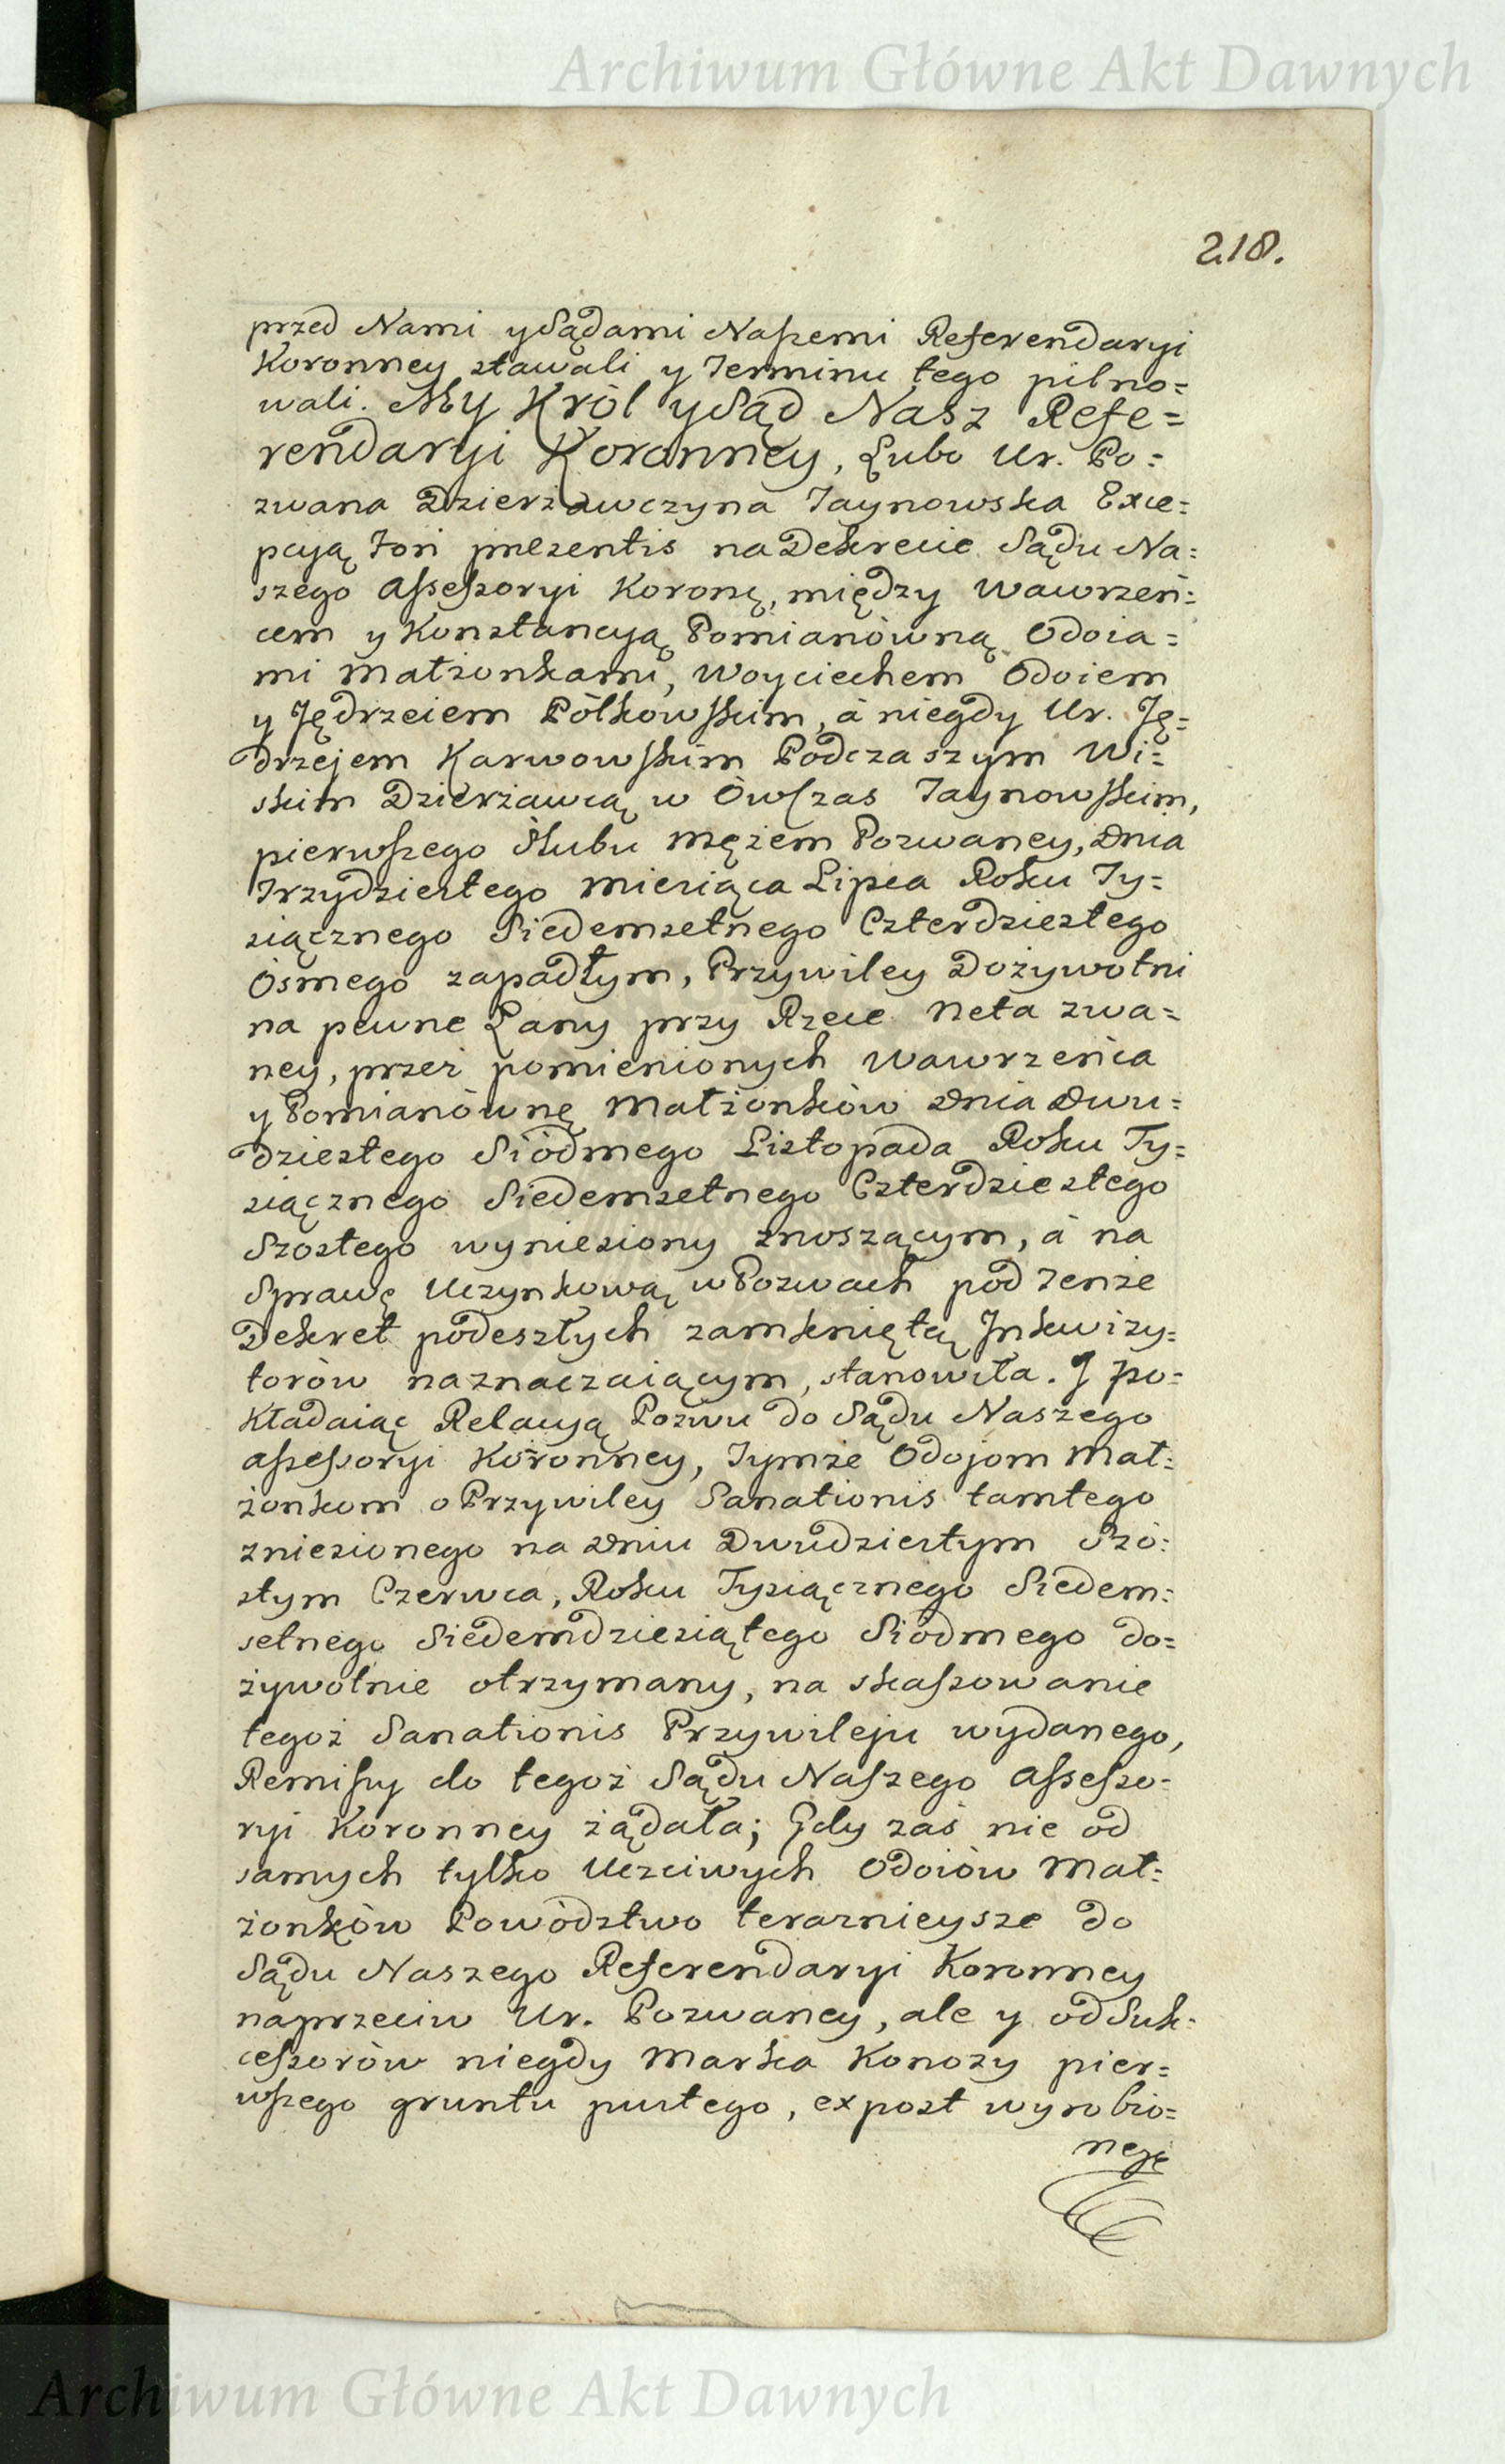 Archiwum Główne Akt Dawnych
218.
przed Nami y Sądami Naszemi Referendaryi
Koronney stawali y Terminu tego pilno=
wali. My Król y Sąd Nasz Refe=
rendaryi Koronney, Lubo Ur. Po=
zwana Dzierzawczyna Jaynowska Exce=
pcyą Fori prezentis na Dekrecie Sądu Na=
szego Assessoryi Koroną, między Wawrzeń=
cem y Konstancyą Pomianówną Odoia=
mi Małżonkami, Woyciechem Odoiem
y Jędrzeiem Pólkowskim, á niegdy Ur. Ję=
drzejem Karwowskim Podczaszym Wi=
skim Dzierżawcą w Ówczas Jaynowskim,
pierwszego Ślubu Mężem Pozwaney, Dnia
Trzydziestego Miesiąca Lipca Roku Ty=
siącznego Siedemsetnego Czterdziestego
Ósmego zapadłym, Przywiley Dożywotni
na pewne Łany przy Rzece Neta zwa=
ney, przez pomienionych Wawrzeńca
y Pomianównę Małżonków Dnia Dwu=
dziestego Siódmego Listopada Roku Ty=
siącznego Siedemsetnego Czterdziestego
Szostego wyniesiony znoszącym, á na
Sprawę Uczynkową w Pozwach pod tenże
Dekret podeszłych zamkniętą Inkwizy=
torów naznaczaiącym, stanowiła. J po=
kładaiąc Relacyą Pozwu do Sądu Naszego
Assessoryi Koronney, Tymże Odojom Mał=
żonkom o Przywiley Sanationis tamtego
zniesionego na Dniu Dwudziestym Szó=
stym Czerwca, Roku Tysiącznego Siedem=
setnego Siedemdziesiątego Siódmego do=
żywotnie otrzymany, na skassowanie
tegoż Sanationis Przywileju wydanego,
Remissy do tegoż Sądu Naszego Assesso=
ryi Koronney żądała; Gdy zaś nie od
samych tylko Uczciwych Odoiów Mał=
żonków Powództwo teraznieysze do
Sądu Naszego Referendaryi Koronney
naprzeciw Ur. Pozwaney, ale y od Suk=
cessorów niegdy Marka Konozy pier=
wszego gruntu pustego, ex post wyrobio=
nego
Archiwum Główne Akt Dawnych